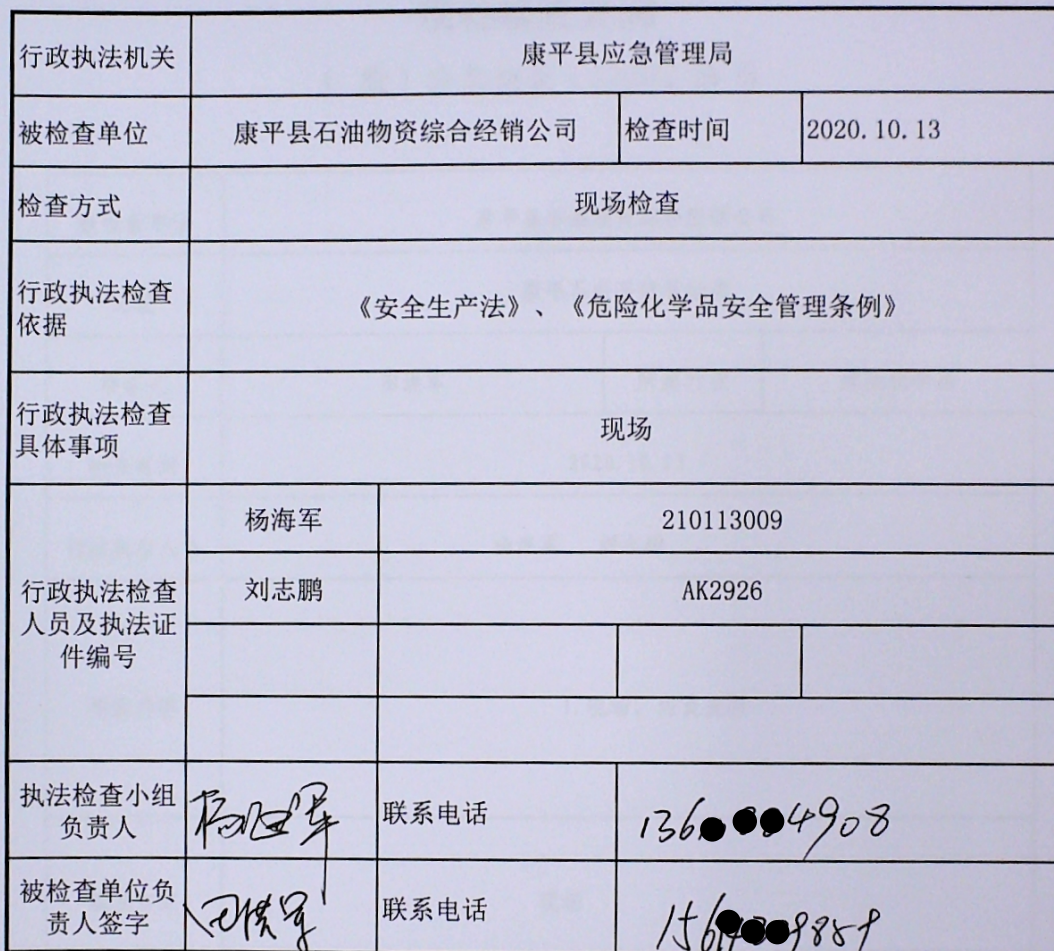 行政执法机关 康平县应急管理局
被检查单位 康平县石油物资综合经销公司 检查时间 2020.10.13
检查方式 现场检查
行政执法检查
依据
《安全生产法》、《危险化学品安全管理条例》
行政执法检查
具体事项
现场
行政执法检查
人员及执法证
件编号
杨海军 210113009
刘志鹏 AK2926
执法检查小组
负责人
杨海军
联系电话 136 4908
被检查单位负
责人签字
联系电话 156 9859